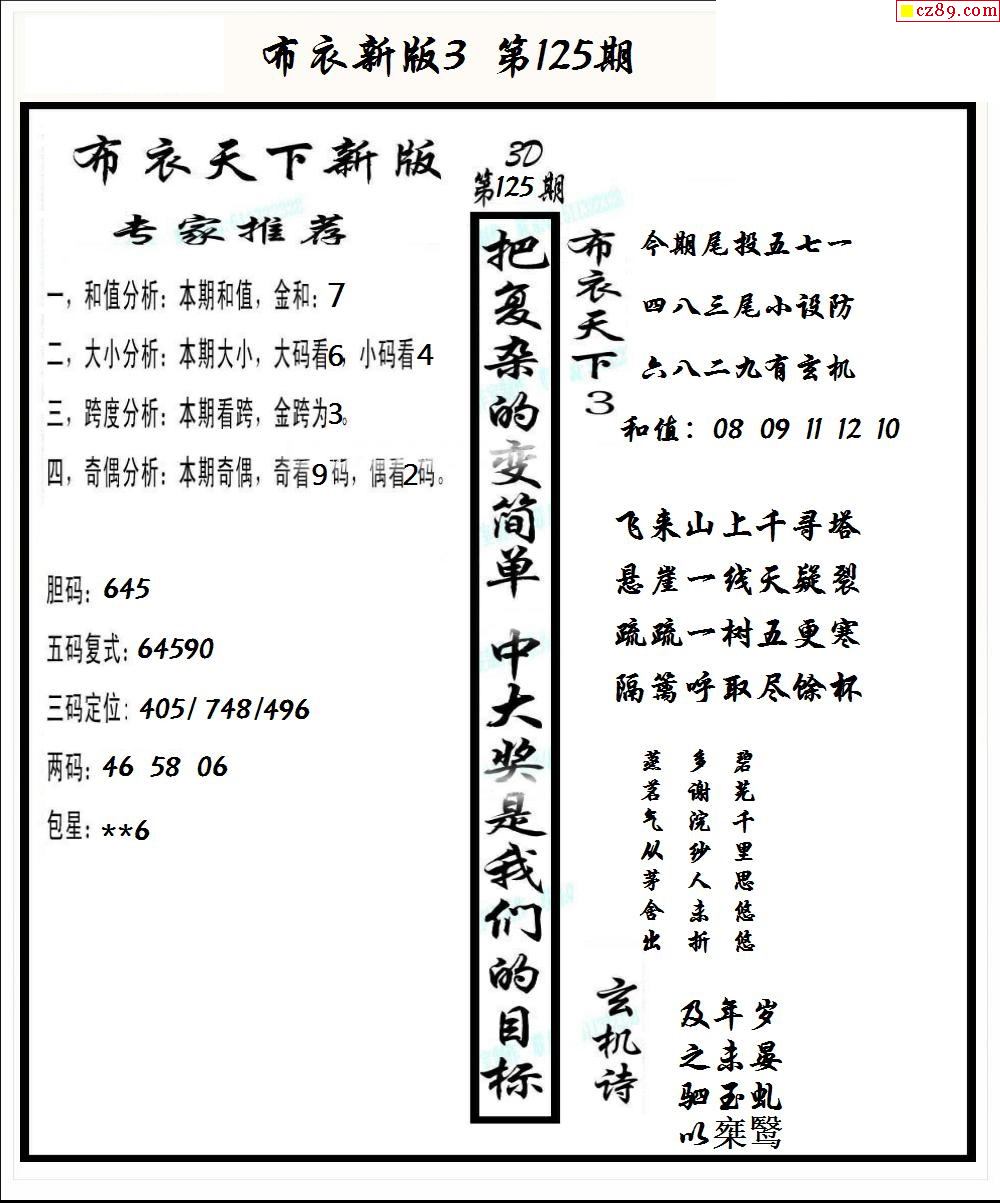 cz89.com
布衣新版3 第125期
布衣天下新版
专家推荐
一，和值分析：本期和值，金和：7
二，大小分析：本期大小，大码看6，小码看4
三，跨度分析：本期看跨，金跨为3。
四，奇偶分析：本期奇偶，奇看9码，偶看2码。
胆码：645
五码复式：64590
三码定位：405/ 748/496
两码：46 58 06
包星：**6
3D
第125期
把复杂的变简单 中大奖是我们的目标
布衣天下3
今期尾投五七一
四八三尾小设防
六八二九有玄机
和值：08 09 11 12 10
飞来山上千寻塔
悬崖一线天疑裂
疏疏一树五更寒
隔篱呼取尽馀杯
碧芜千里思悠悠
多谢浣纱人未折
蒸茗气从茅舍出
玄机诗
及年岁
之未晏
驷玉虬
以椉鹥